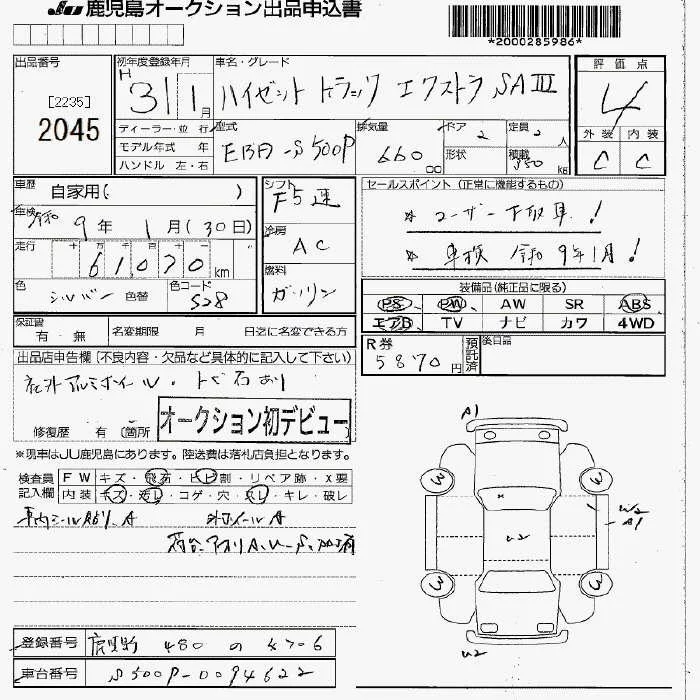 JU 鹿児島オークション出品申込書
*2000285986*
出品番号
[2235]
2045
初年度登録年月
H 31 1月
車名・グレード
ハイゼット トラック エクストラ SAⅢ
評価点
4
外装 内装
C C
ディーラー・並行
モデル年式 年
ハンドル 左・右
型式
EBD-S500P
排気量
660 cc
ドア 2
形状
定員 2人
積載 350 kg
車歴
自家用( )
車検
令和 9年 1月(30日)
走行
十万千百十
61070km
色
シルバー 色替
色コード
S28
シフト
F5速
冷房
AC
燃料
ガソリン
セールスポイント(正常に機能するもの)
* ユーザー下取車!
* 車検 令和9年1月!
装備品(純正品に限る)
PS PW AW SR ABS
エアB TV ナビ カワ 4WD
保証書
有・無
名変期限 月 日迄に名変できる方
R券
5870円
預託済
後日品
出品店申告欄(不良内容・欠品など具体的に記入して下さい)
社外アルミホイール・トビ石あり
修復歴 有(箇所
オークション初デビュー
※現車はJU鹿児島にあります。陸送費は落札店負担となります。
検査員記入欄
FW キズ・飛石・ヒビ割・リペア跡・X要
内装 キズ・汚レ・コゲ・穴・スレ・キレ・破レ
車内シール貼り、A ホイールA
荷台
A1
3 3
W2
A1
U2
3 3
U2
登録番号
鹿児島 480 の
車台番号
S500P-0094622